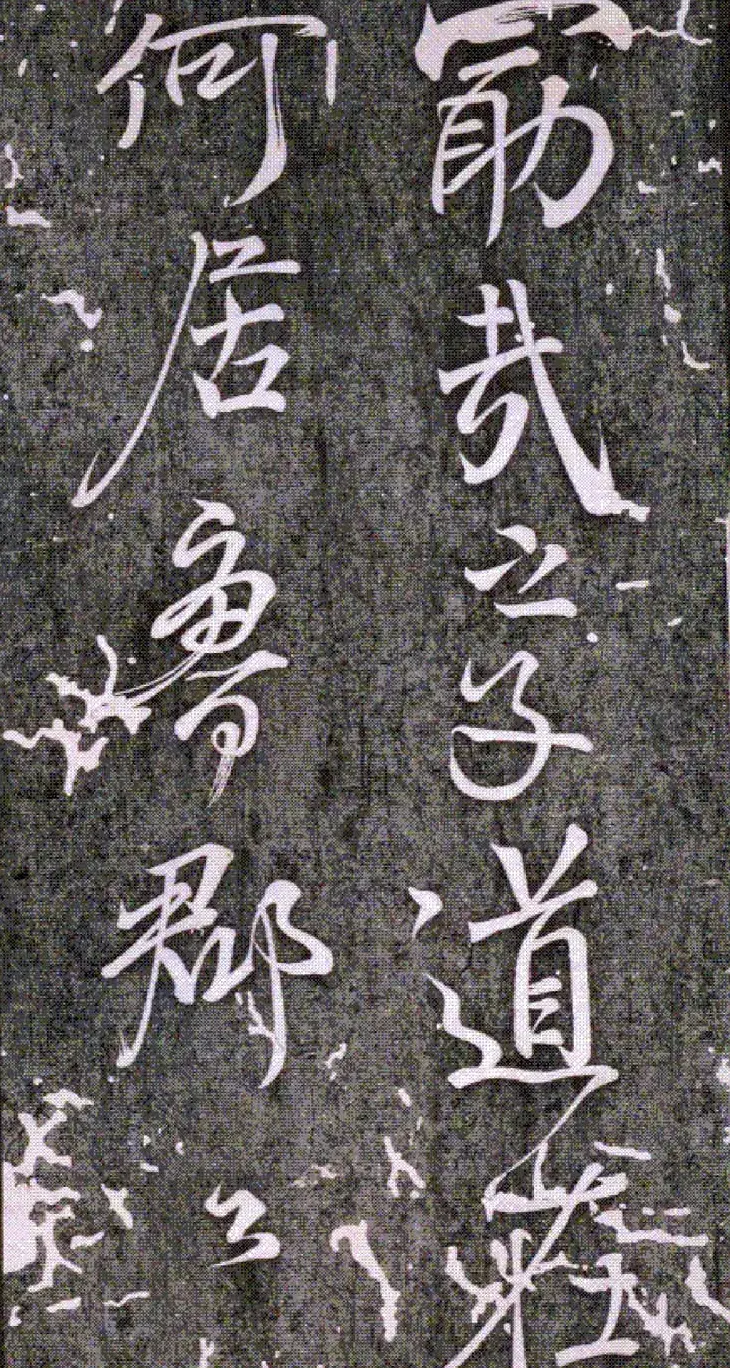 勖哉之子道莊
何居魯郡之